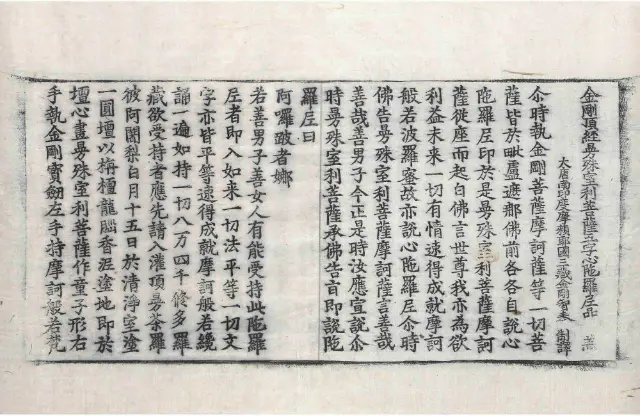 金剛頂經曼殊室利菩薩五字心陀羅尼品 羔
大唐南印度摩賴耶國三藏金剛智奉 制譯
尒時執金剛菩薩摩訶薩等一切菩
薩皆於毗盧遮那佛前各各自說心
陁羅尼印於是曼殊室利菩薩摩訶
薩從座而起白佛言世尊我亦為欲
利益未來一切有情速得成就摩訶
般若波羅蜜故亦說心陁羅尼尒時
佛告曼殊室利菩薩摩訶薩言善哉
善哉善男子今正是時汝應宣說尒
時曼殊室利菩薩承佛告言即說陁
羅尼曰
阿囉跛者娜
若善男子善女人有能受持此陁羅
尼者即入如來一切法平等一切文
字亦皆平等速得成就摩訶般若纔
誦一遍如持一切八万四千修多羅
藏欲受持者應先請入灌頂曼荼羅
彼阿闍梨白月十五日於清淨室塗
一圓壇以栴檀龍腦香涂塗地即於
壇心畫曼殊室利菩薩作童子形右
手執金剛寶劒左手持摩訶般若梵